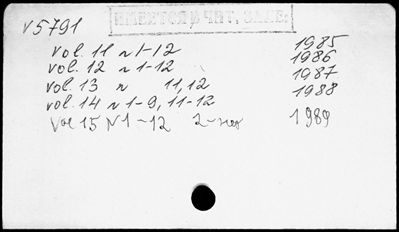 ИМЕЕТСЯ В ЧИТ. ЗАЛЕ.
v 5791
vol. 11 n 1-12 1985
vol. 12 n 1-12 1986
vol. 13 n 11, 12 1987
vol. 14 n 1-9, 11-12 1988
Vol 15 N 1-12 2-нет 1989